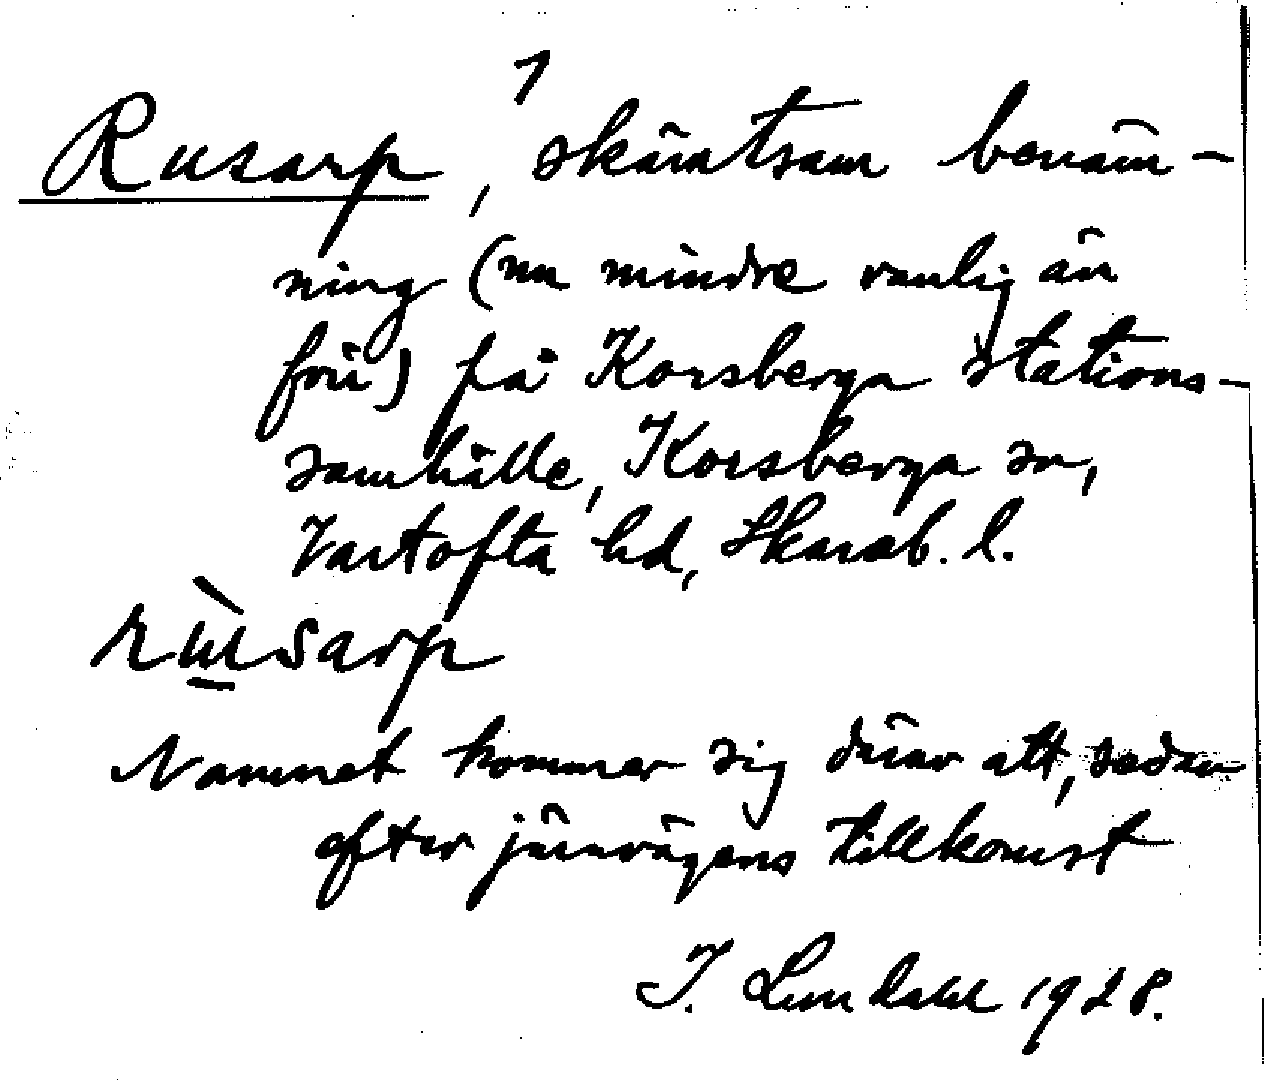 1
Rusarp, skämtsam benäm-
ning (nu mindre vanlig än
förr) på Korsberga stations-
samhälle, Korsberga sn,
Vartofta hd, Skarab. l.
rùsarp
Namnet kommer sig därav att, sedan
efter järnvägens tillkomst
I. Lundahl 1928.